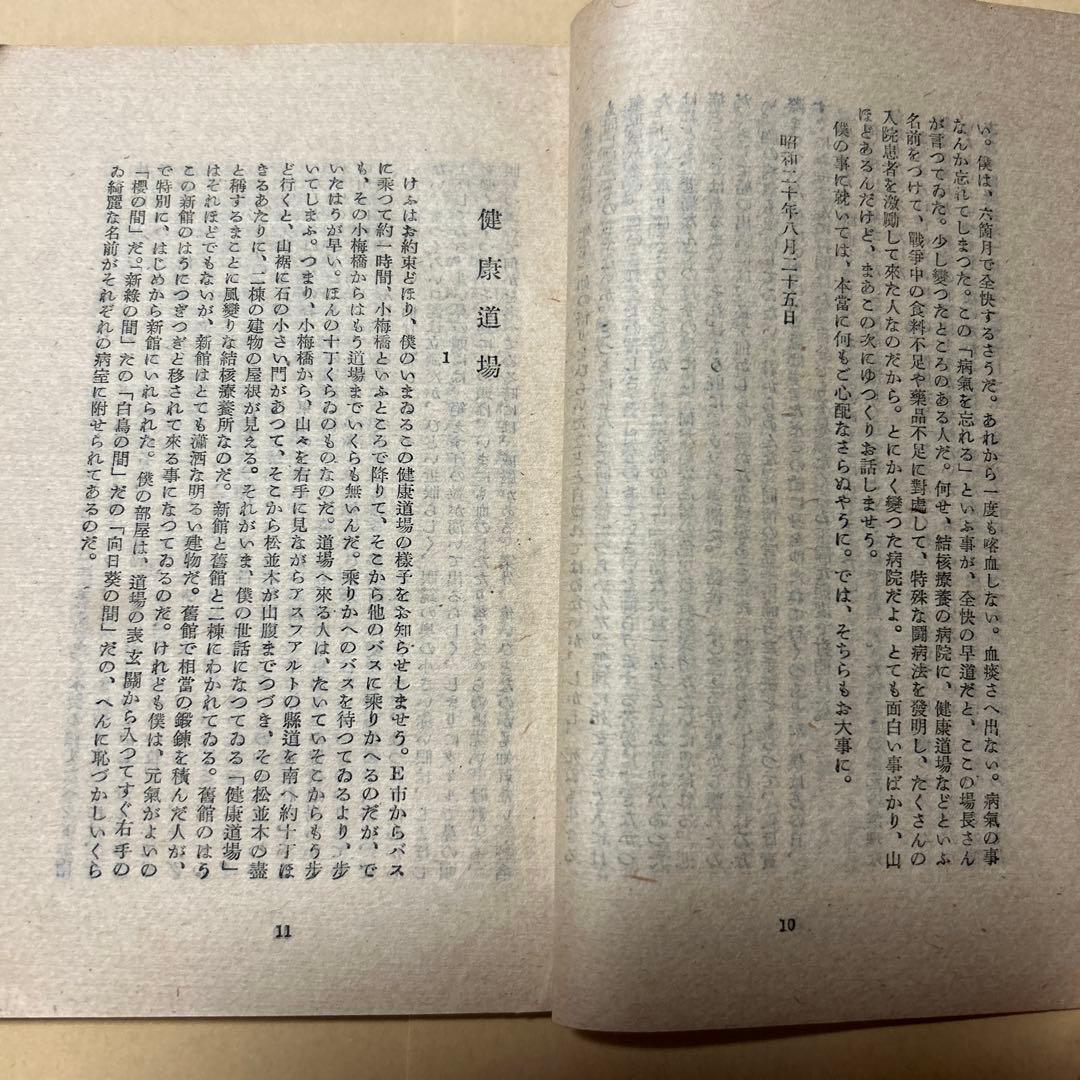 い。僕は、六箇月で全快するさうだ。あれから一度も喀血しない。血痰さへ出ない。病氣の事
なんか忘れてしまつた。この「病氣を忘れる」といふ事が、全快の早道だと、ここの場長さん
が言つてゐた。少し變つたところのある人だ。何せ、結核療養の病院に、健康道場などといふ
名前をつけて、戰爭中の食料不足や藥品不足に對處して、特殊な闘病法を發明し、たくさんの
入院患者を激勵して來た人なのだから。とにかく變つた病院だよ。とても面白い事ばかり、山
ほどあるんだけど、まあこの次にゆつくりお話しませう。
僕の事に就いては、本當に何もご心配なさらぬやうに。では、そちらもお大事に。
昭和二十年八月二十五日
10
健康道場
1
けふはお約束どほり、僕のいまゐるこの健康道場の樣子をお知らせしませう。E市からバス
に乘つて約一時間、小梅橋といふところで降りて、そこから他のバスに乘りかへるのだが、で
も、その小梅橋からはもう道場までいくらも無いんだ。乘りかへのバスを待つてゐるより、歩
いたはうが早い。ほんの十丁くらゐのものなのだ。道場へ來る人は、たいていそこからもう歩
いてしまふ。つまり、小梅橋から、山々を右手に見ながらアスフアルトの縣道を南へ約十丁ほ
ど行くと、山裾に石の小さい門があつて、そこから松並木が山腹までつづき、その松並木の盡
きるあたりに、二棟の建物の屋根が見える。それがいま、僕の世話になつてゐる「健康道場」
と稱するまことに風變りな結核療養所なのだ。新館と舊館と二棟にわかれてゐる。舊館のはう
はそれほどでもないが、新館はとても瀟洒な明るい建物だ。舊館で相當の鍛錬を積んだ人が、
この新館のはうにつぎつぎと移されて來る事になつてゐるのだ。けれども僕は、元氣がよいの
で特別に、はじめから新館にいれられた。僕の部屋は、道場の表玄關から入つてすぐ右手の
「櫻の間」だ。「新綠の間」だの「白鳥の間」だの「向日葵の間」だの、へんに恥づかしいくら
ゐ綺麗な名前がそれぞれの病室に附せられてあるのだ。
11